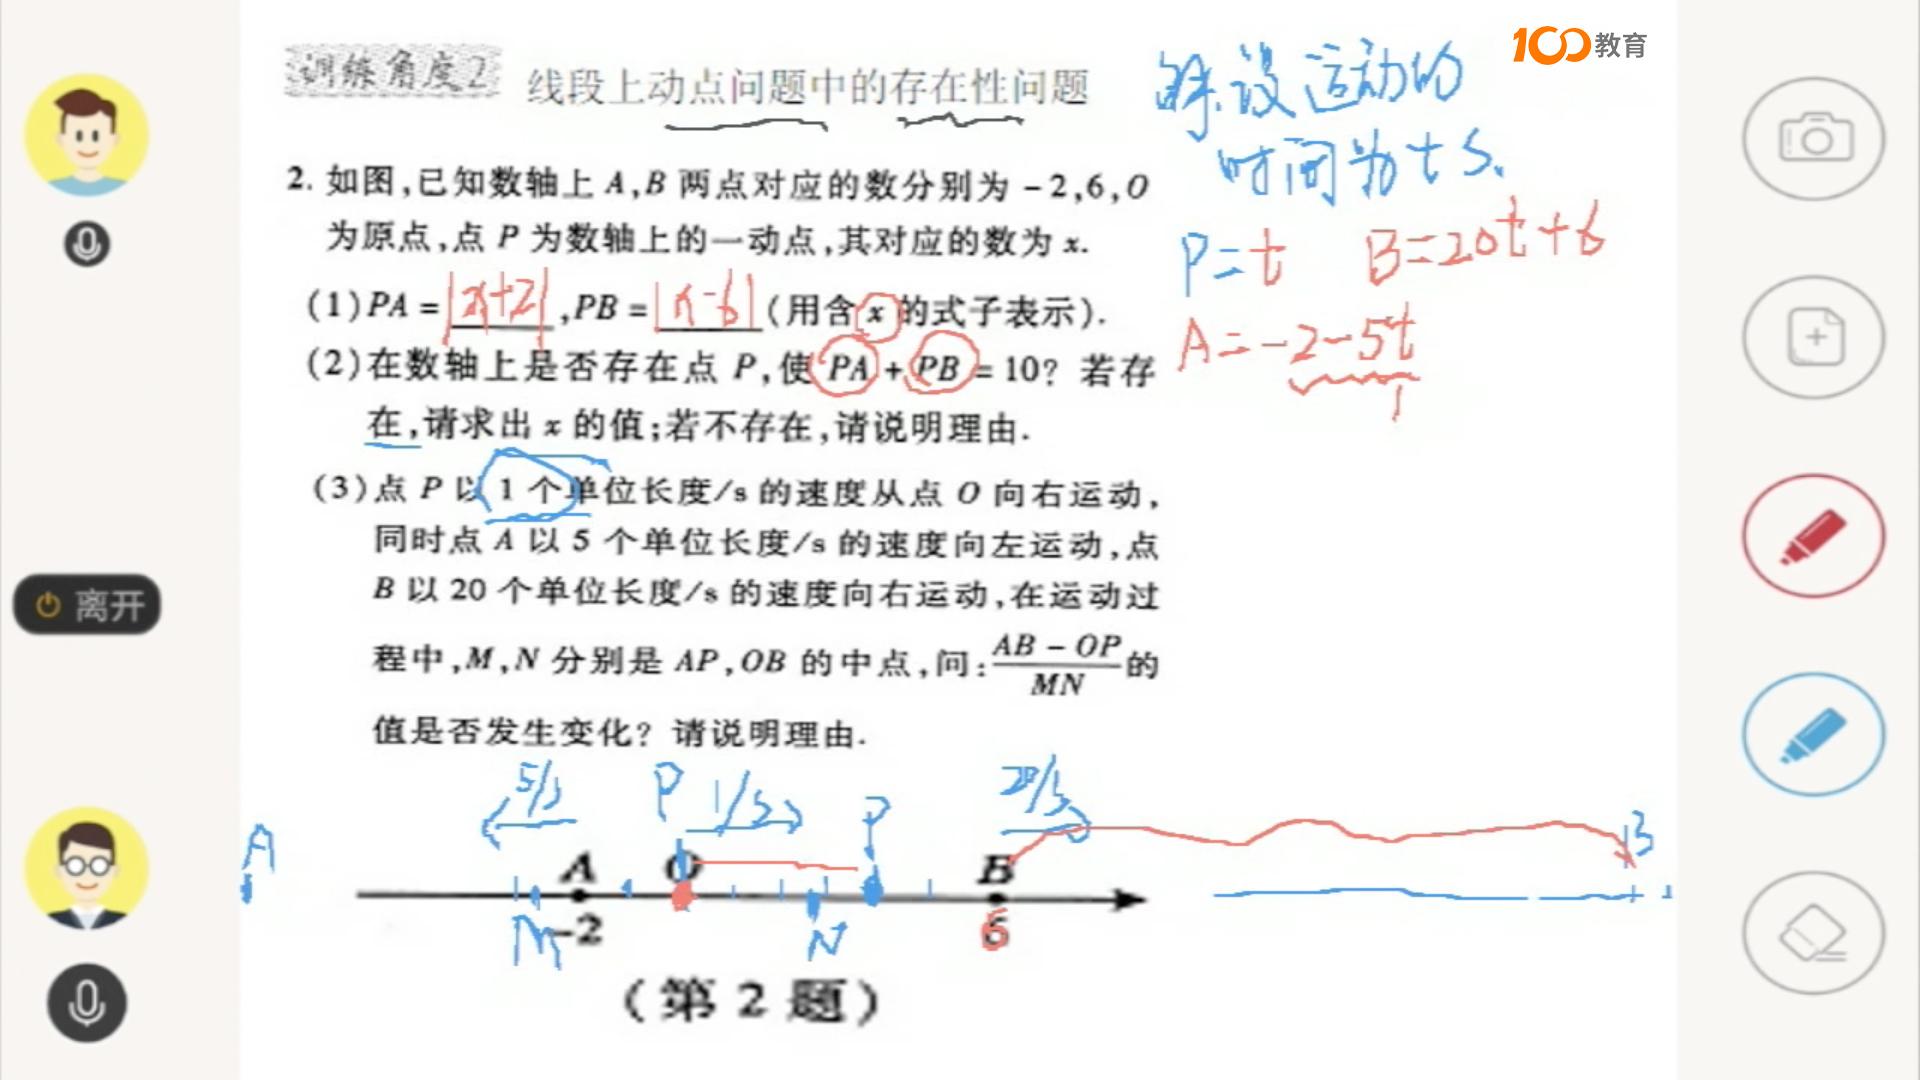 训练角度2 线段上动点问题中的存在性问题
100教育
2. 如图,已知数轴上 A,B 两点对应的数分别为 -2,6,O
为原点,点 P 为数轴上的一动点,其对应的数为 x.
(1)PA = |x+2| ,PB = |x-6| (用含 x 的式子表示).
(2)在数轴上是否存在点 P,使 PA + PB = 10? 若存
在,请求出 x 的值;若不存在,请说明理由.
(3)点 P 以 1 个单位长度/s 的速度从点 O 向右运动,
同时点 A 以 5 个单位长度/s 的速度向左运动,点
B 以 20 个单位长度/s 的速度向右运动,在运动过
程中,M,N 分别是 AP,OB 的中点,问: (AB - OP)/MN 的
值是否发生变化? 请说明理由.
解:设运动的
时间为 t s.
P=t B=20t+6
A=-2-5t
5/s P 1/s P 20/s
A A O B B
M -2 N 6
(第 2 题)
离开